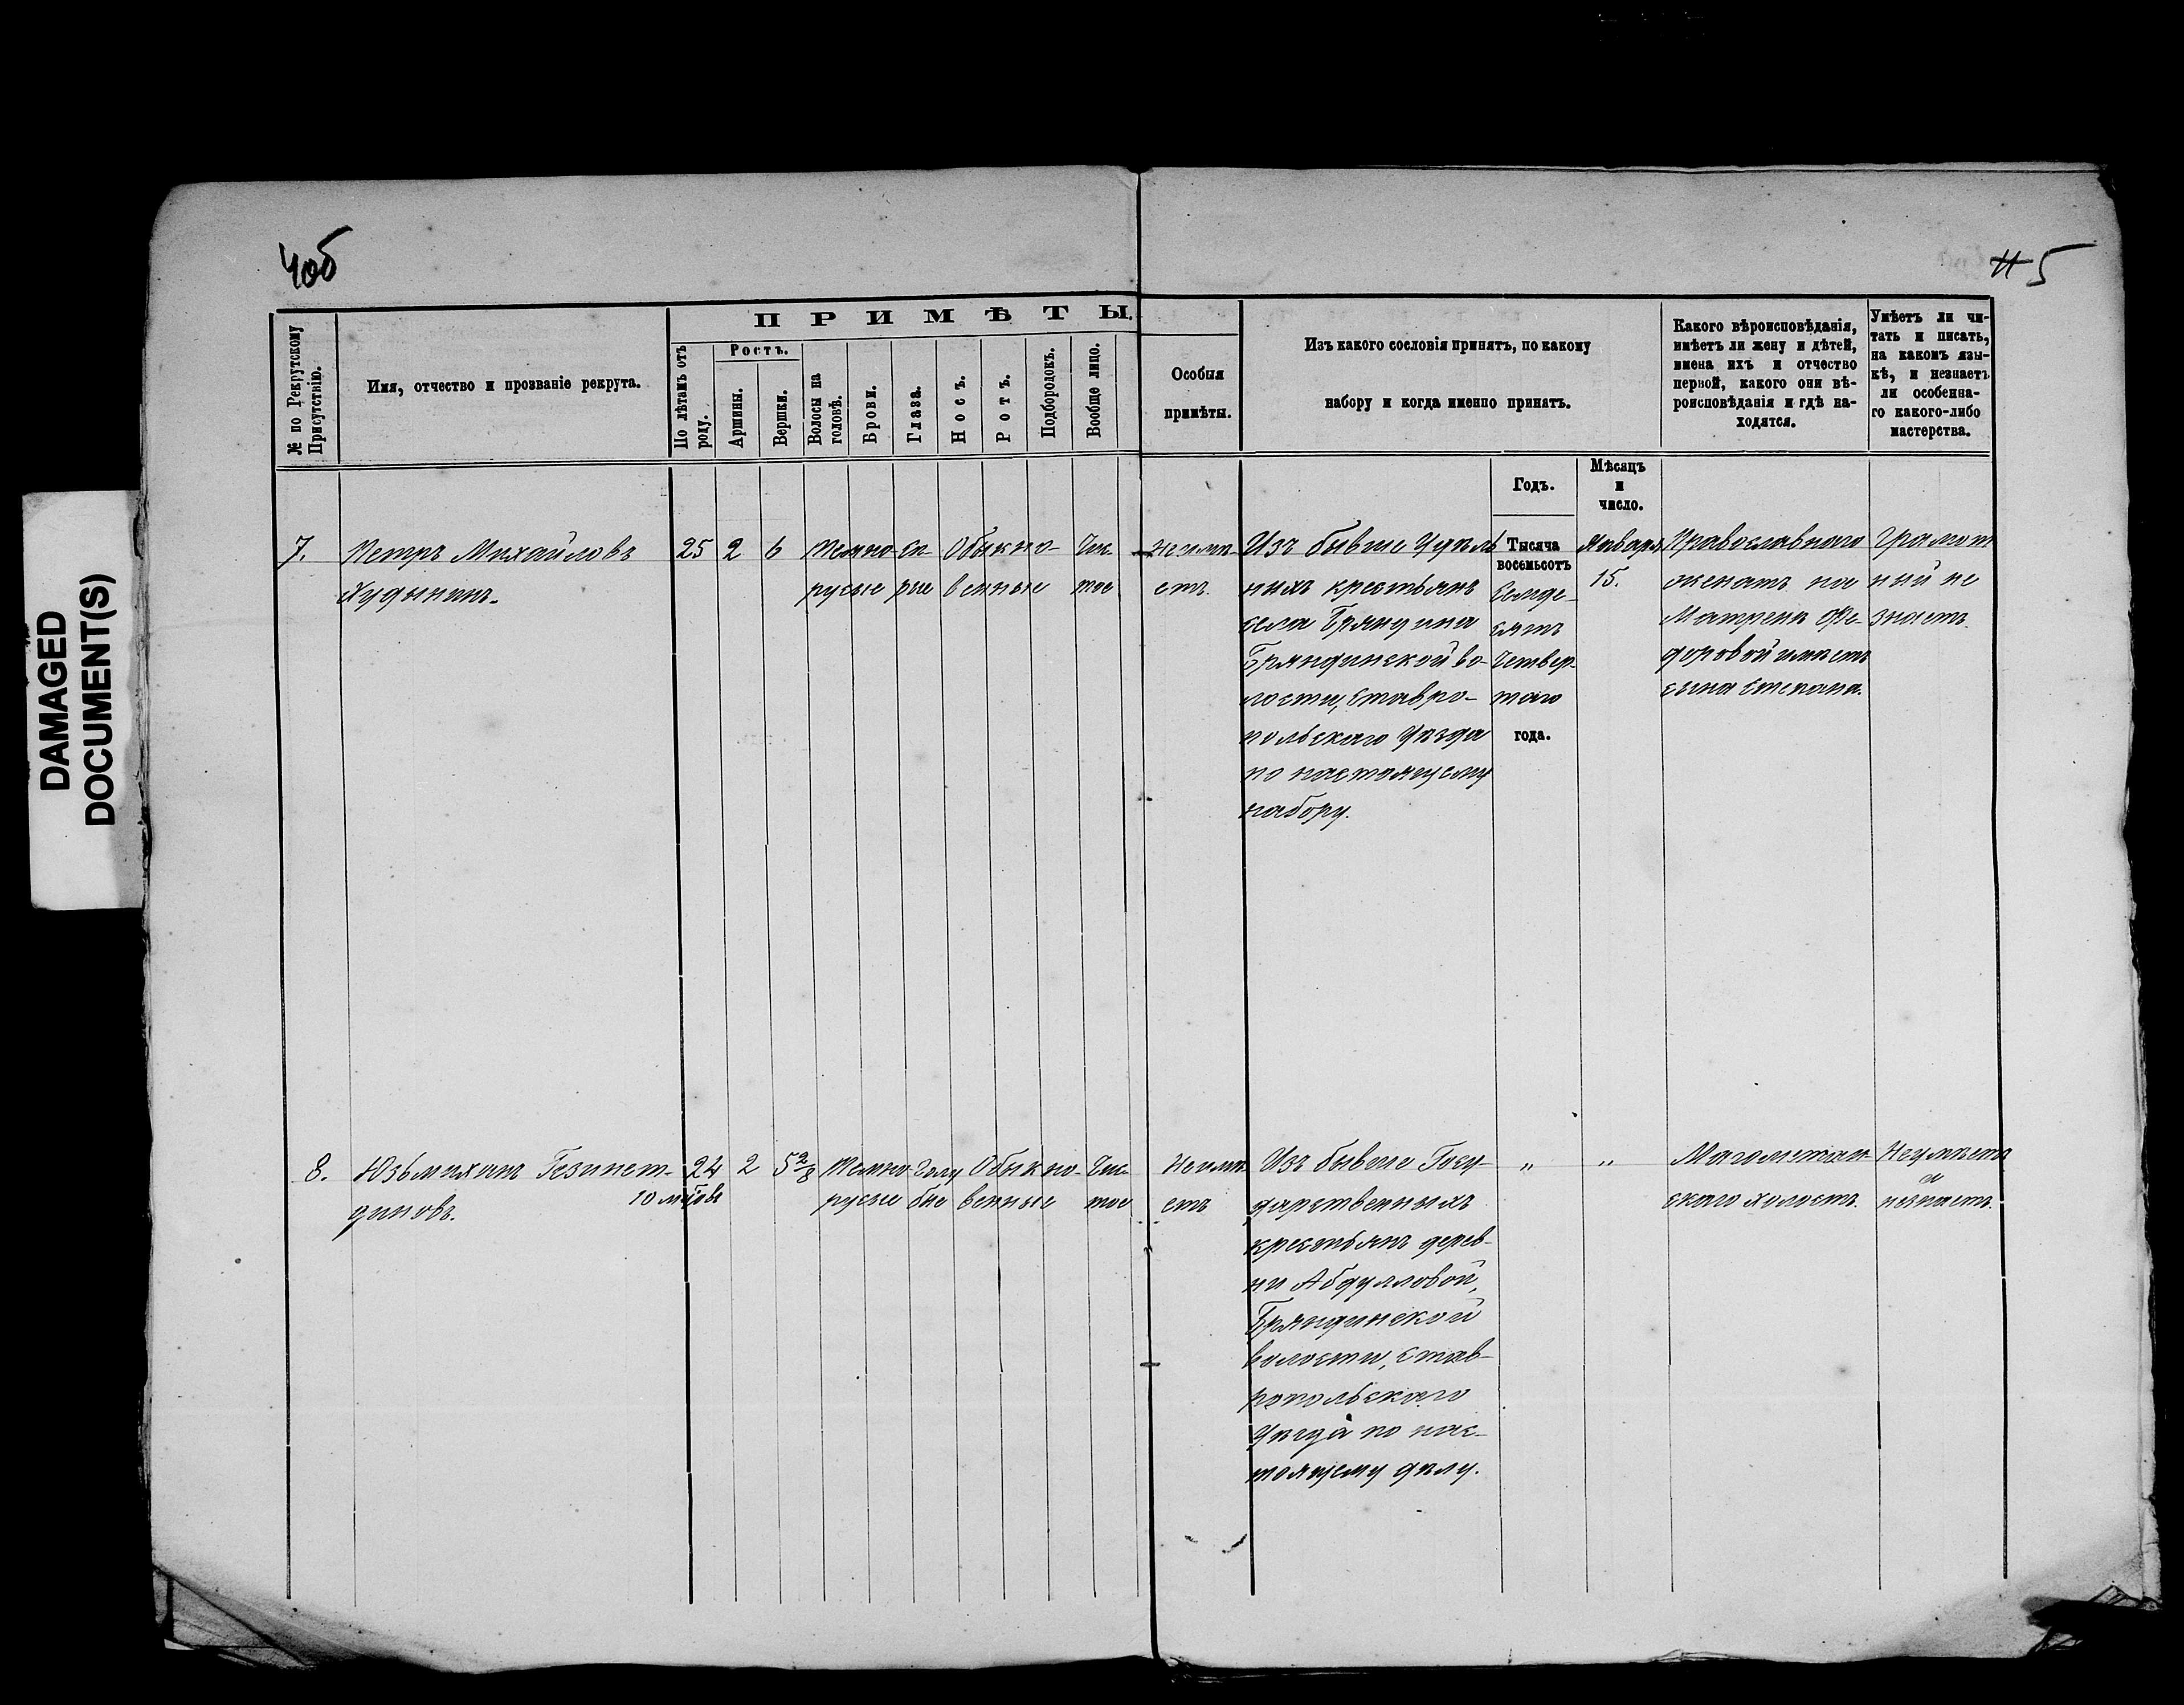 DAMAGED
DOCUMENT(S)
4об
5
№ по Рекрутскому Присутствію.
Имя, отчество и прозваніе рекрута.
ПРИМѢТЫ.
По лѣтамъ отъ роду.
Ростъ.
Аршины.
Вершки.
Волосы на головѣ.
Брови.
Глаза.
Носъ.
Ротъ.
Подбородокъ.
Вообще лицо.
Особыя
примѣты.
Изъ какого сословія принятъ, по какому
набору и когда именно принятъ.
Какого вѣроисповѣданія,
имѣетъ ли жену и дѣтей,
имена ихъ и отчество
первой, какого они вѣ-
роисповѣданія и гдѣ на-
ходятся.
Умѣетъ ли чи-
тать и писать,
на какомъ язы-
кѣ, и незнаетъ
ли особенна-
го какого-либо
мастерства.
Годъ.
Мѣсяцъ
и
число.
7.
Петръ Михайловъ
Худынинъ.
25 2 6
Темно-
русые
Сѣ-
рые
Обыкно-
венные
Чис-
тое
Неимѣ-
етъ.
Изъ бывше Удѣль
ныхъ крестьянъ
села Бряндина
Бряндинской во-
лости, Ставро-
польскаго Уѣзда
по настоящему
набору.
Тысяча
восемьсотъ
Семде-
сятъ
Четвер-
таго
года.
Января
15.
Православнаго
женатъ на
Матренѣ Фе-
доровой имѣетъ
сына Степана.
Грамот
ный не
знаетъ.
8.
Юзьмиханъ Гезинет-
диновъ.
24
10 м
2 5 2/8
Темно-
русые
Голу
бые
Обыкно-
венные
Чис-
тое
Неимѣ-
етъ
Изъ бывше Госу-
дарственныхъ
крестьянъ дерев-
ни Абдулловой,
Бряндинской
волости, Став-
ропольскаго
Уѣзда по нас-
тоящему дѣлу.
„ „
Магометан-
скаго холостъ.
Неумѣетъ
и
незнаетъ.